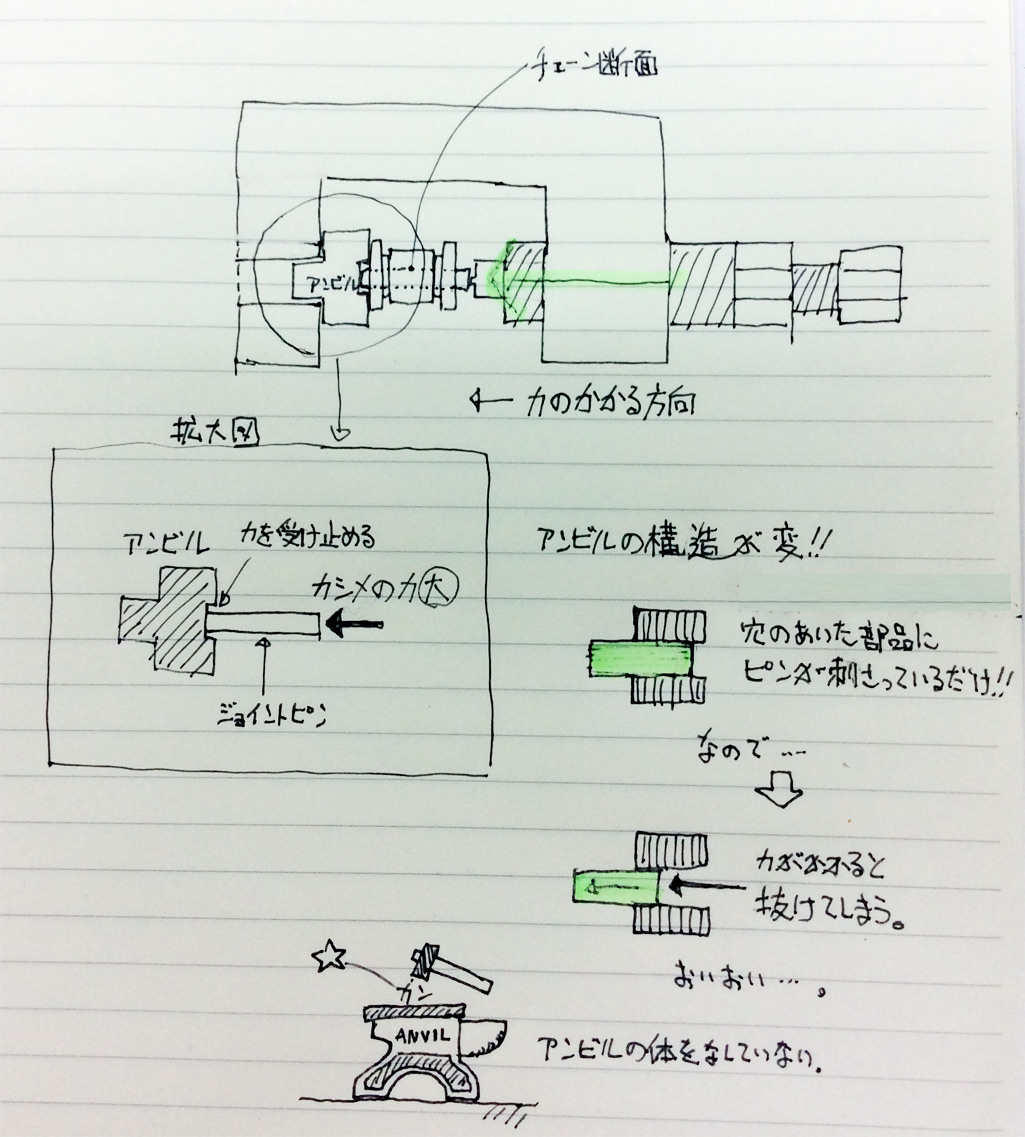 チェーン断面
アンビル
← 力のかかる方向
拡大図
アンビル
力を受け止める
カシメの力大
ジョイントピン
アンビルの構造が変!!
穴のあいた部品に
ピンが刺さっているだけ!!
なので…
力がかかると
抜けてしまう。
おいおい…。
カン
ANVIL
アンビルの体をなしていない。